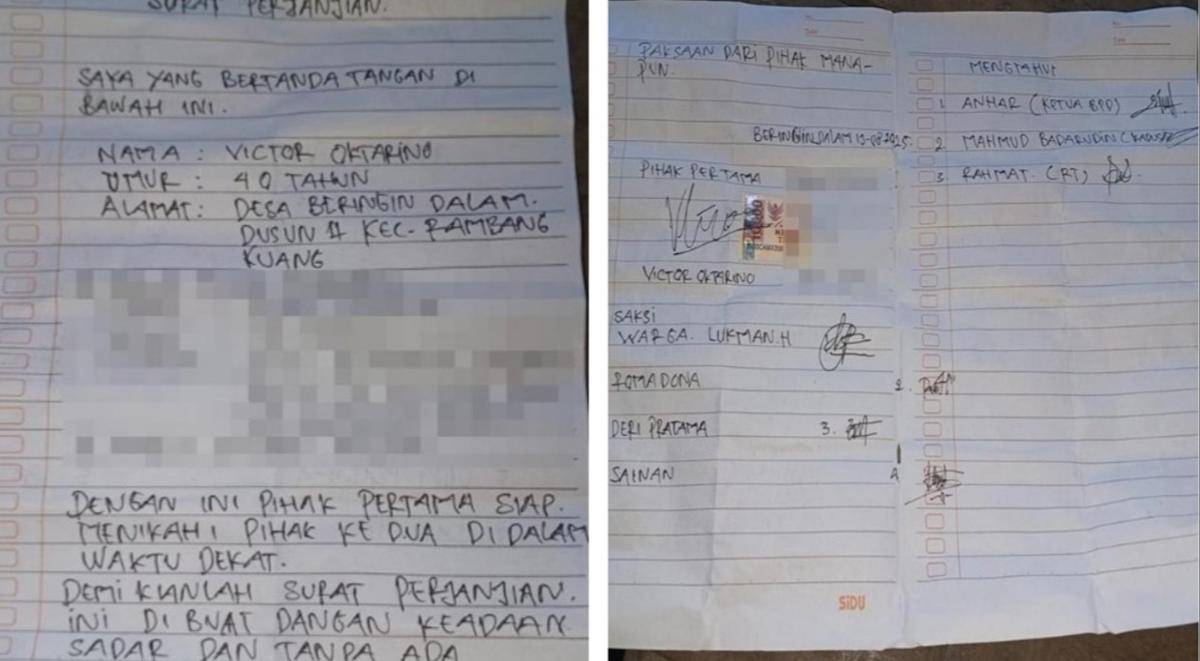 SURAT PERJANJIAN.
SAYA YANG BERTANDA TANGAN DI
BAWAH INI.
NAMA : VICTOR OKTARINO
UMUR : 40 TAHUN
ALAMAT : DESA BERINGIN DALAM.
DUSUN II KEC. RAMBANG
KUANG
DENGAN INI PIHAK PERTAMA SIAP.
MENIKAHI PIHAK KE DUA DI DALAM
WAKTU DEKAT.
DEMI KIANLAH SURAT PERJANJIAN.
INI DI BUAT DANGAN KEADAAN
SADAR DAN TANPA ADA
PAKSAAN DARI PIHAK MANA-
PUN.
BERINGIN DALAM 13-08-2025.
PIHAK PERTAMA
VICTOR OKTARINO
SAKSI
WARGA. LUKMAN.H
ROMADONA 2.
DERI PRATAMA 3.
SAINAN 4
SiDU
MENGTAHUI
1 ANHAR (KETUA BPD)
2 MAHMUD BADARUDIN (KADUS)
3 RAHMAT. (RT)